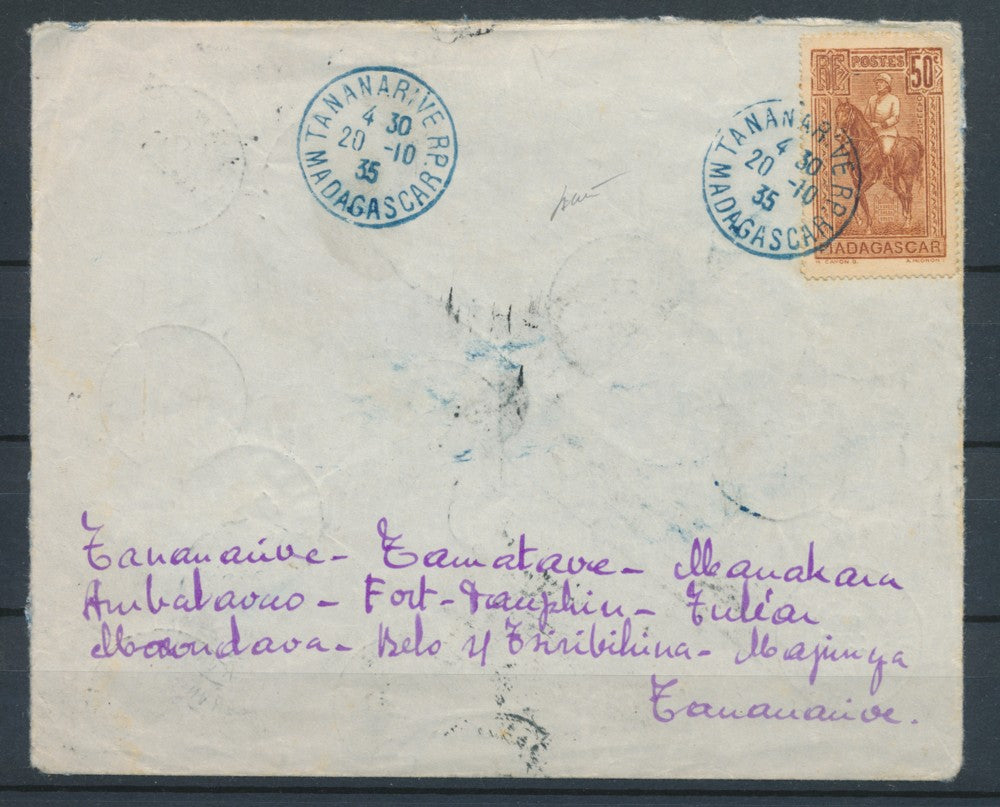 TANANARIVE RP.
4 30
20 -10
35
MADAGASCAR
TANANARIVE RP.
4 30
20 -10
35
MADAGASCAR
RF POSTES 50c
MADAGASCAR
Tananarive - Tamatave - Manakara
Ambalavao - Fort-Dauphin - Tuléar
Morondava - Belo s/ Tsiribihina - Majunga
Tananarive.